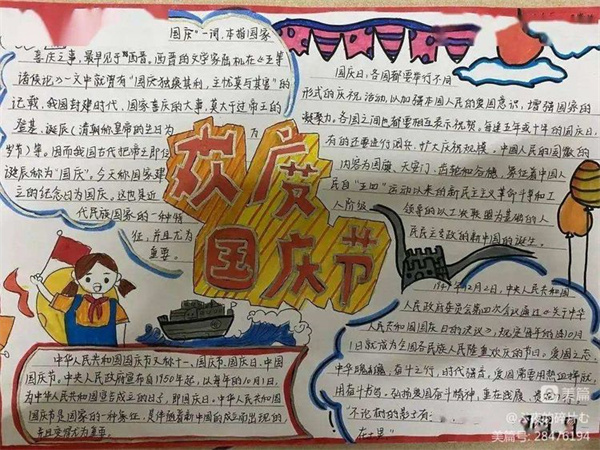 国庆"一词,本指国家
喜庆之事,最早见于西晋。西晋的文学家陆机在《五等
诸侯论》一文中就曾有"国庆独飨其利,主忧莫与其害"的
记载,我国封建时代,国家喜庆的大事,莫大过于帝王的
登基、诞辰(清朝称皇帝的生日为
岁节)等。因而我国古代把帝王即位
诞辰称为"国庆"。今天称国家建
立的纪念日为国庆,这也是近
代民族国家的一种特
征,并且尤为
重要。
欢度
国庆节
国庆日,各国都要举行不同
形式的庆祝活动,以加强本国人民的爱国意识,增强国家的
凝聚力。各国之间也都要相互表示祝贺。每逢五年或十年的国庆日,
有的还要进行阅兵,扩大庆祝规模。中国人民的国徽的
内容为国旗、天安门、齿轮和谷穗,象征着中国人
民自"五四"运动以来的新民主主义革命斗争和工
人阶级
领导的以工农联盟为基础的人
民民主专政的新中国的诞生。
中华人民共和国国庆节又称十一、国庆节、国庆日、中国
国庆节。中央人民政府宣布自1950年起,以每年的10月1日,
为中华人民共和国宣告成立的日子,即国庆日。中华人民共和国
国庆节是国家的一种象征,是伴随着新中国的成立而出现的
并且变得尤为重要。
1949年12月2日,中央人民共和国
人民政府委员会第四次会议通过《关于中华
人民共和国国庆日的决议》,规定每年的10月1
日就成为全国各族人民隆重欢庆的节日。爱国之志,
美篇
美篇号:28476194